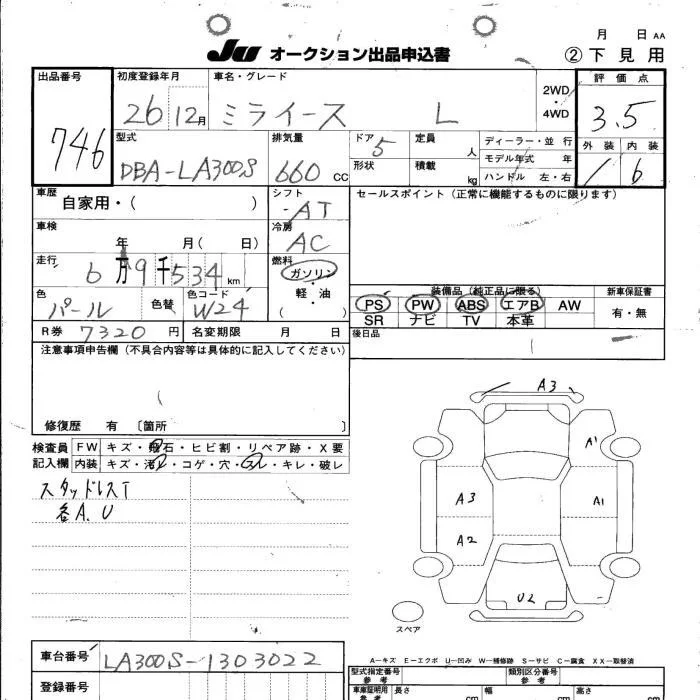 月 日 AA
JU オークション出品申込書 ② 下見用
出品番号 初度登録年月 車名・グレード 2WD・4WD 評価点
746 26 12月 ミライース L 3.5
型式 排気量 ドア 定員 ディーラー・並行 外装 内装
DBA-LA300S 660 CC 5 人 モデル年式 年
形状 積載 kg ハンドル 左・右 6
車歴 自家用・( ) シフト AT セールスポイント (正常に機能するものに限ります)
車検 年 月( 日) 冷房 AC
走行 6万9千534km 燃料 ガソリン・軽油・( )
色 パール 色替 色コード W24 装備品 (純正品に限る) 新車保証書
PS PW ABS エアB AW 有・無
SR ナビ TV 本革
R券 7320円 名変期限 月 日 後日品
注意事項申告欄 (不具合内容等は具体的に記入してください)
修復歴 有 〔箇所 〕
検査員 FW キズ・飛石・ヒビ割・リペア跡・X要
記入欄 内装 キズ・汚レ・コゲ・穴・スレ・キレ・破レ
スタッドレスT
各A.U
A3
A1
A3 A1
A2
U2
スペア
A-キズ E-エクボ U-凹み W-補修跡 S-サビ C-腐食 XX-取替済
車台番号 LA300S-1303022
型式指定番号 参考 類別区分番号 参考
登録番号 車庫証明用 参考 長さ cm 幅 cm 高さ cm